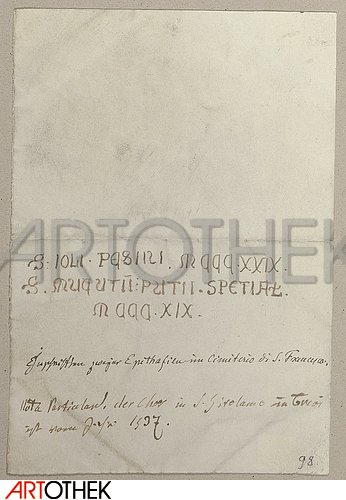 S· IOLI · PASINI · MCCC·XXIX·
S· MUCUTII· PUTII · SPETIAŁ·
MCCC·XIX·
Inschriften zweyer Epithafien im Cimiterio di S. Francesco.
Nota Particulare. der Chor in S. Girolamo in
ist vom Jahr 1537.
98
ARTOTHEK
ARTOTHEK